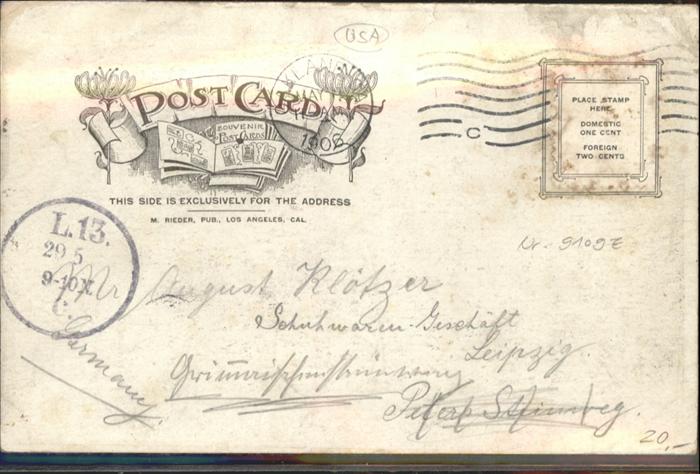 USA
POST CARD
SOUVENIR
POST CARDS
MAY
1906
PLACE STAMP
HERE
DOMESTIC
ONE CENT
FOREIGN
TWO CENTS
C
THIS SIDE IS EXCLUSIVELY FOR THE ADDRESS
M. RIEDER, PUB., LOS ANGELES, CAL.
L.13.
29 5
9-10
C.
Nr. 9109E
Mr August Klötzer
Schuhwaren-Geschäft
Leipzig.
Germany.
Peters Steinweg.
20,-